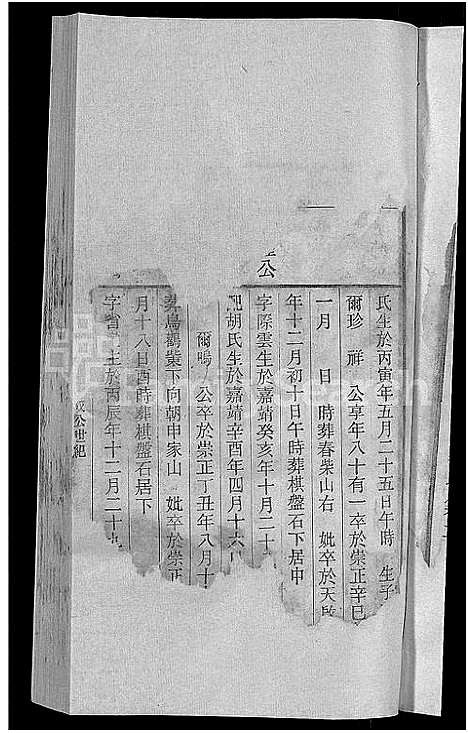 公
氏生於丙寅年五月二十五日午時　生子
爾珍　祥　公享年八十有一卒於崇正辛巳
一月　日　時葬春柴山右　妣卒於天啟
年十二月初十日午時葬棋盤石下居中
字際雲生於嘉靖癸亥年十月二十
配胡氏生於嘉靖辛酉年四月十六
爾暘　公卒於崇正丁丑年八月十
葬烏鵲巢下向朝申家山　妣卒於崇正
月十八日酉時葬棋盤石居下
字省　生於丙辰年十二月二十
公世紀